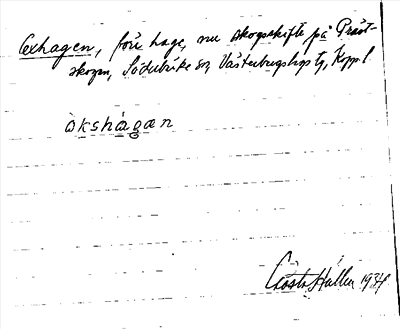 Oxhagen, förr hage, nu skogsskifte på Präst-
skogen, Söderbärke sn, Västerbergslags tg, Koppl.
òkshàgæn
Gösta Hallén 1934